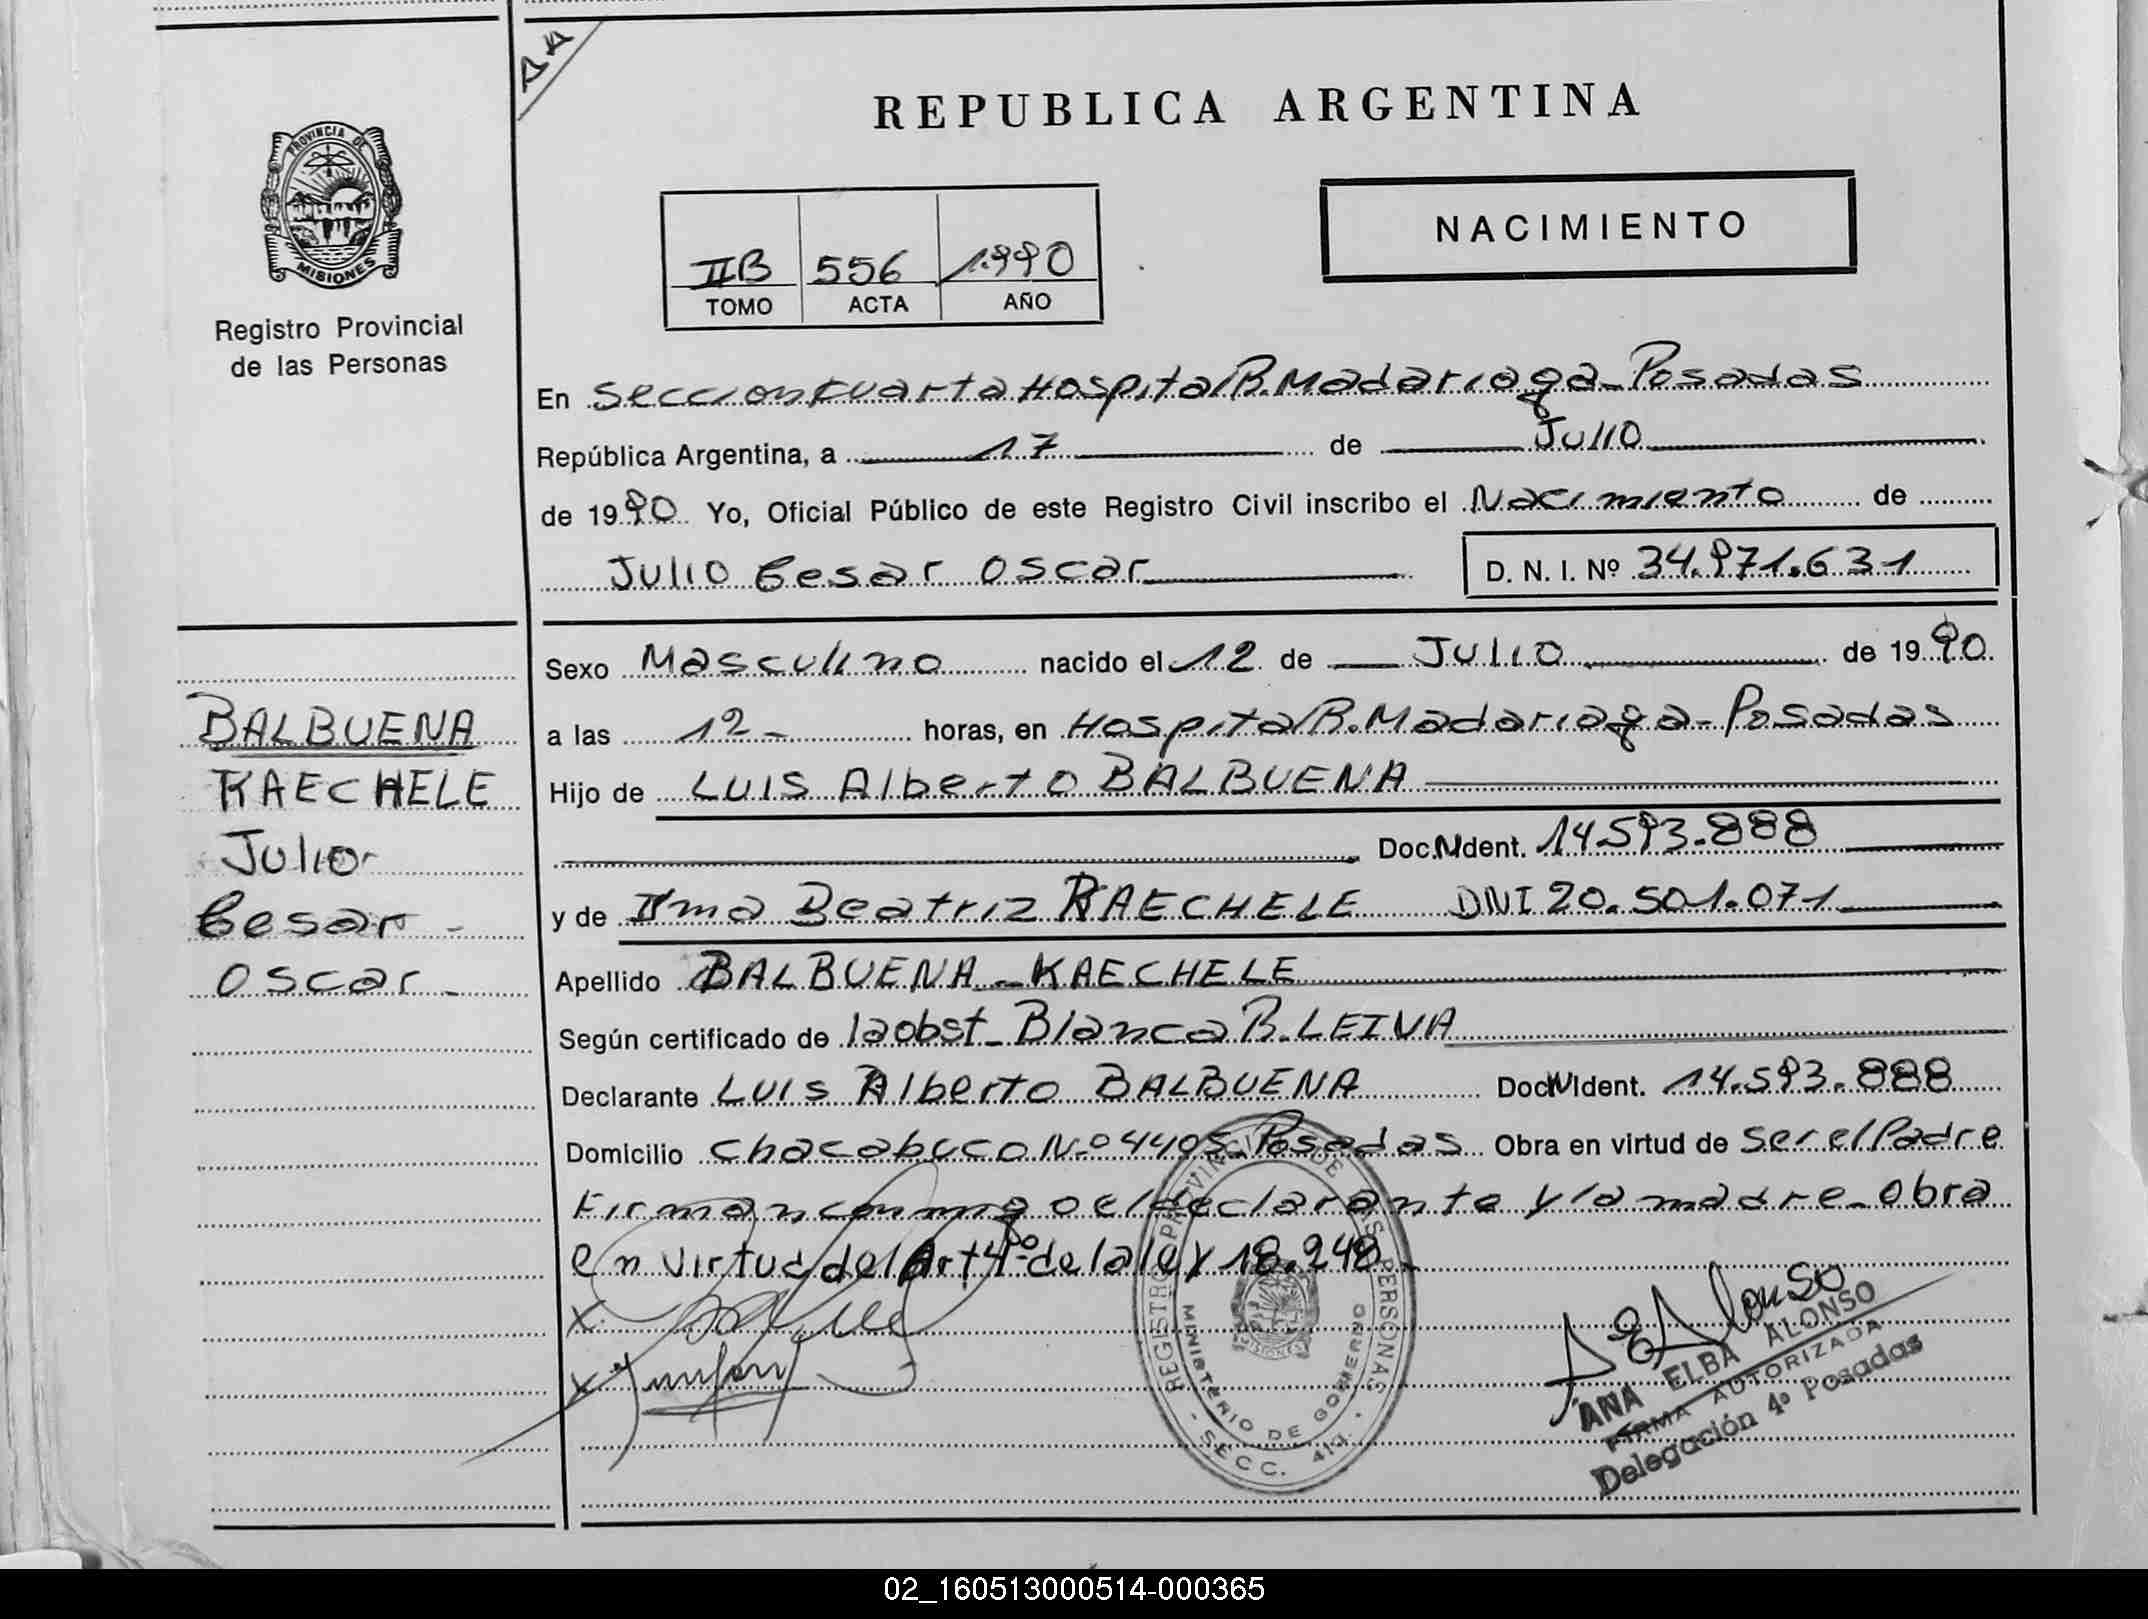 AA
PROVINCIA DE
MISIONES
Registro Provincial
de las Personas
REPUBLICA ARGENTINA
NACIMIENTO
IIB 556 1.990
TOMO ACTA AÑO
En Seccion Cuarta Hospital R. Madariaga - Posadas
República Argentina, a 17 de Julio
de 1990 Yo, Oficial Público de este Registro Civil inscribo el Nacimiento de
Julio Cesar Oscar D. N. I. Nº 34.971.631
Sexo Masculino nacido el 12 de Julio de 1990
a las 12- horas, en Hospital R. Madariaga - Posadas
Hijo de Luis Alberto BALBUENA
Doc. N Ident. 14.593.888
y de Irma Beatriz KAECHELE DNI 20.501.071
Apellido BALBUENA - KAECHELE
Según certificado de la obst_ Blanca R. LEIVA
Declarante Luis Alberto BALBUENA Doc N Ident. 14.593.888
Domicilio Chacabuco Nº 4405 Posadas Obra en virtud de Ser el Padre
Firman conmigo el declarante y la madre_ Obra
en virtud del Art 4º de la ley 18.248-
X
X
BALBUENA
KAECHELE
Julio
Cesar -
Oscar -
REGISTRO PROVINCIAL DE LAS PERSONAS
MINISTERIO DE GOBIERNO
MISIONES
- SECC. 4ta. -
A E Alonso
ANA ELBA ALONSO
FIRMA AUTORIZADA
Delegación 4º Posadas
02_160513000514-000365